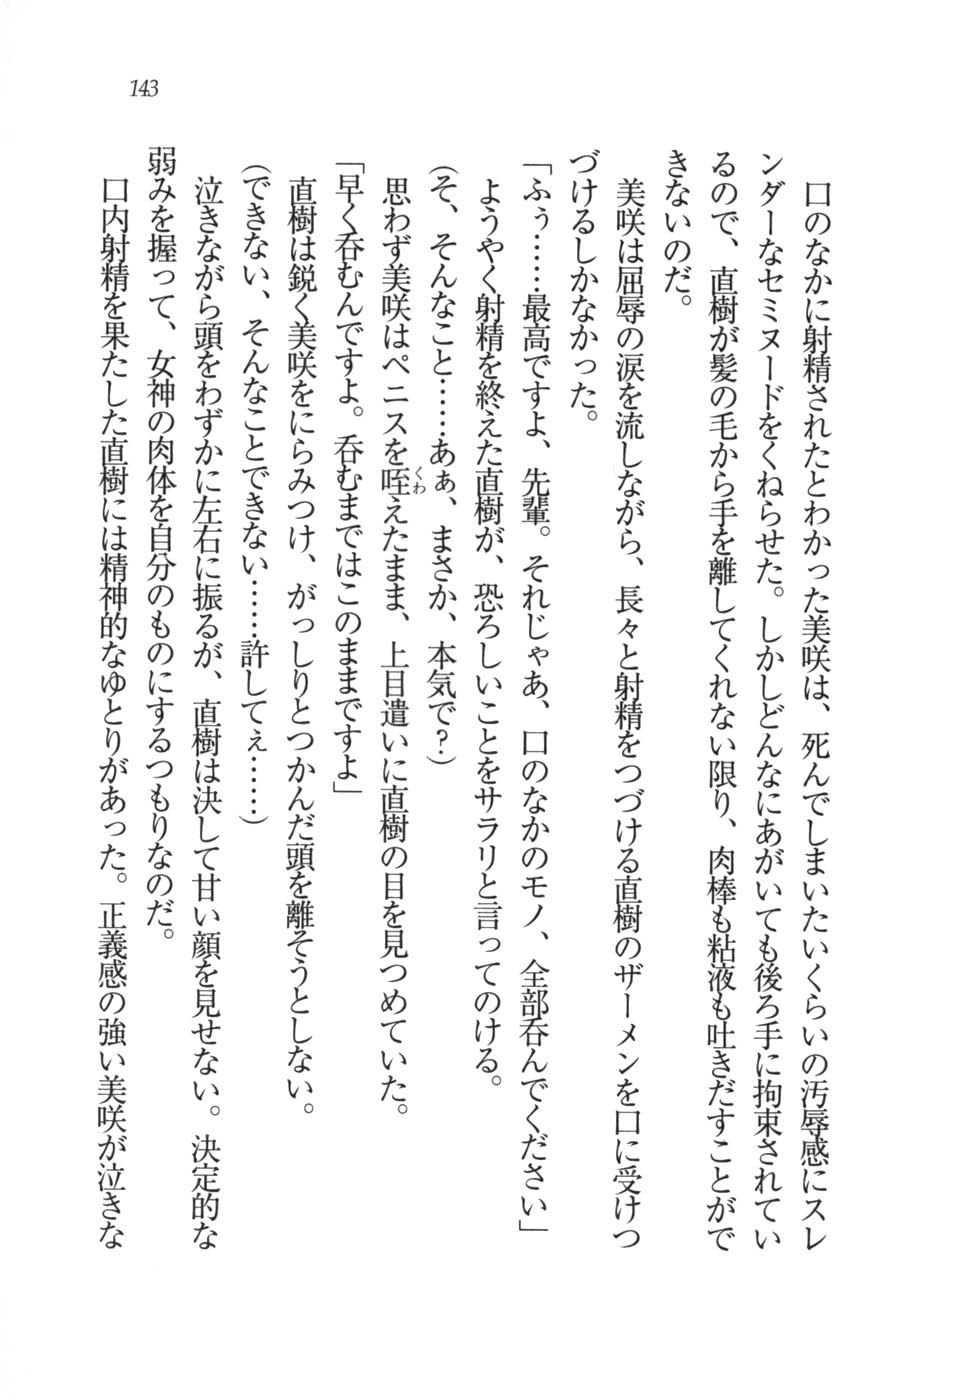 143
口のなかに射精されたとわかった美咲は、死んでしまいたいくらいの汚辱感にスレ
ンダーなセミヌードをくねらせた。しかしどんなにあがいても後ろ手に拘束されてい
るので、直樹が髪の毛から手を離してくれない限り、肉棒も粘液も吐きだすことがで
きないのだ。
美咲は屈辱の涙を流しながら、長々と射精をつづける直樹のザーメンを口に受けつ
づけるしかなかった。
「ふぅ……最高ですよ、先輩。それじゃあ、口のなかのモノ、全部呑んでください」
ようやく射精を終えた直樹が、恐ろしいことをサラリと言ってのける。
(そ、そんなこと……あぁ、まさか、本気で?)
思わず美咲はペニスを咥くわえたまま、上目遣いに直樹の目を見つめていた。
「早く呑むんですよ。呑むまではこのままですよ」
直樹は鋭く美咲をにらみつけ、がっしりとつかんだ頭を離そうとしない。
(できない、そんなことできない……許してぇ……)
泣きながら頭をわずかに左右に振るが、直樹は決して甘い顔を見せない。決定的な
弱みを握って、女神の肉体を自分のものにするつもりなのだ。
口内射精を果たした直樹には精神的なゆとりがあった。正義感の強い美咲が泣きな